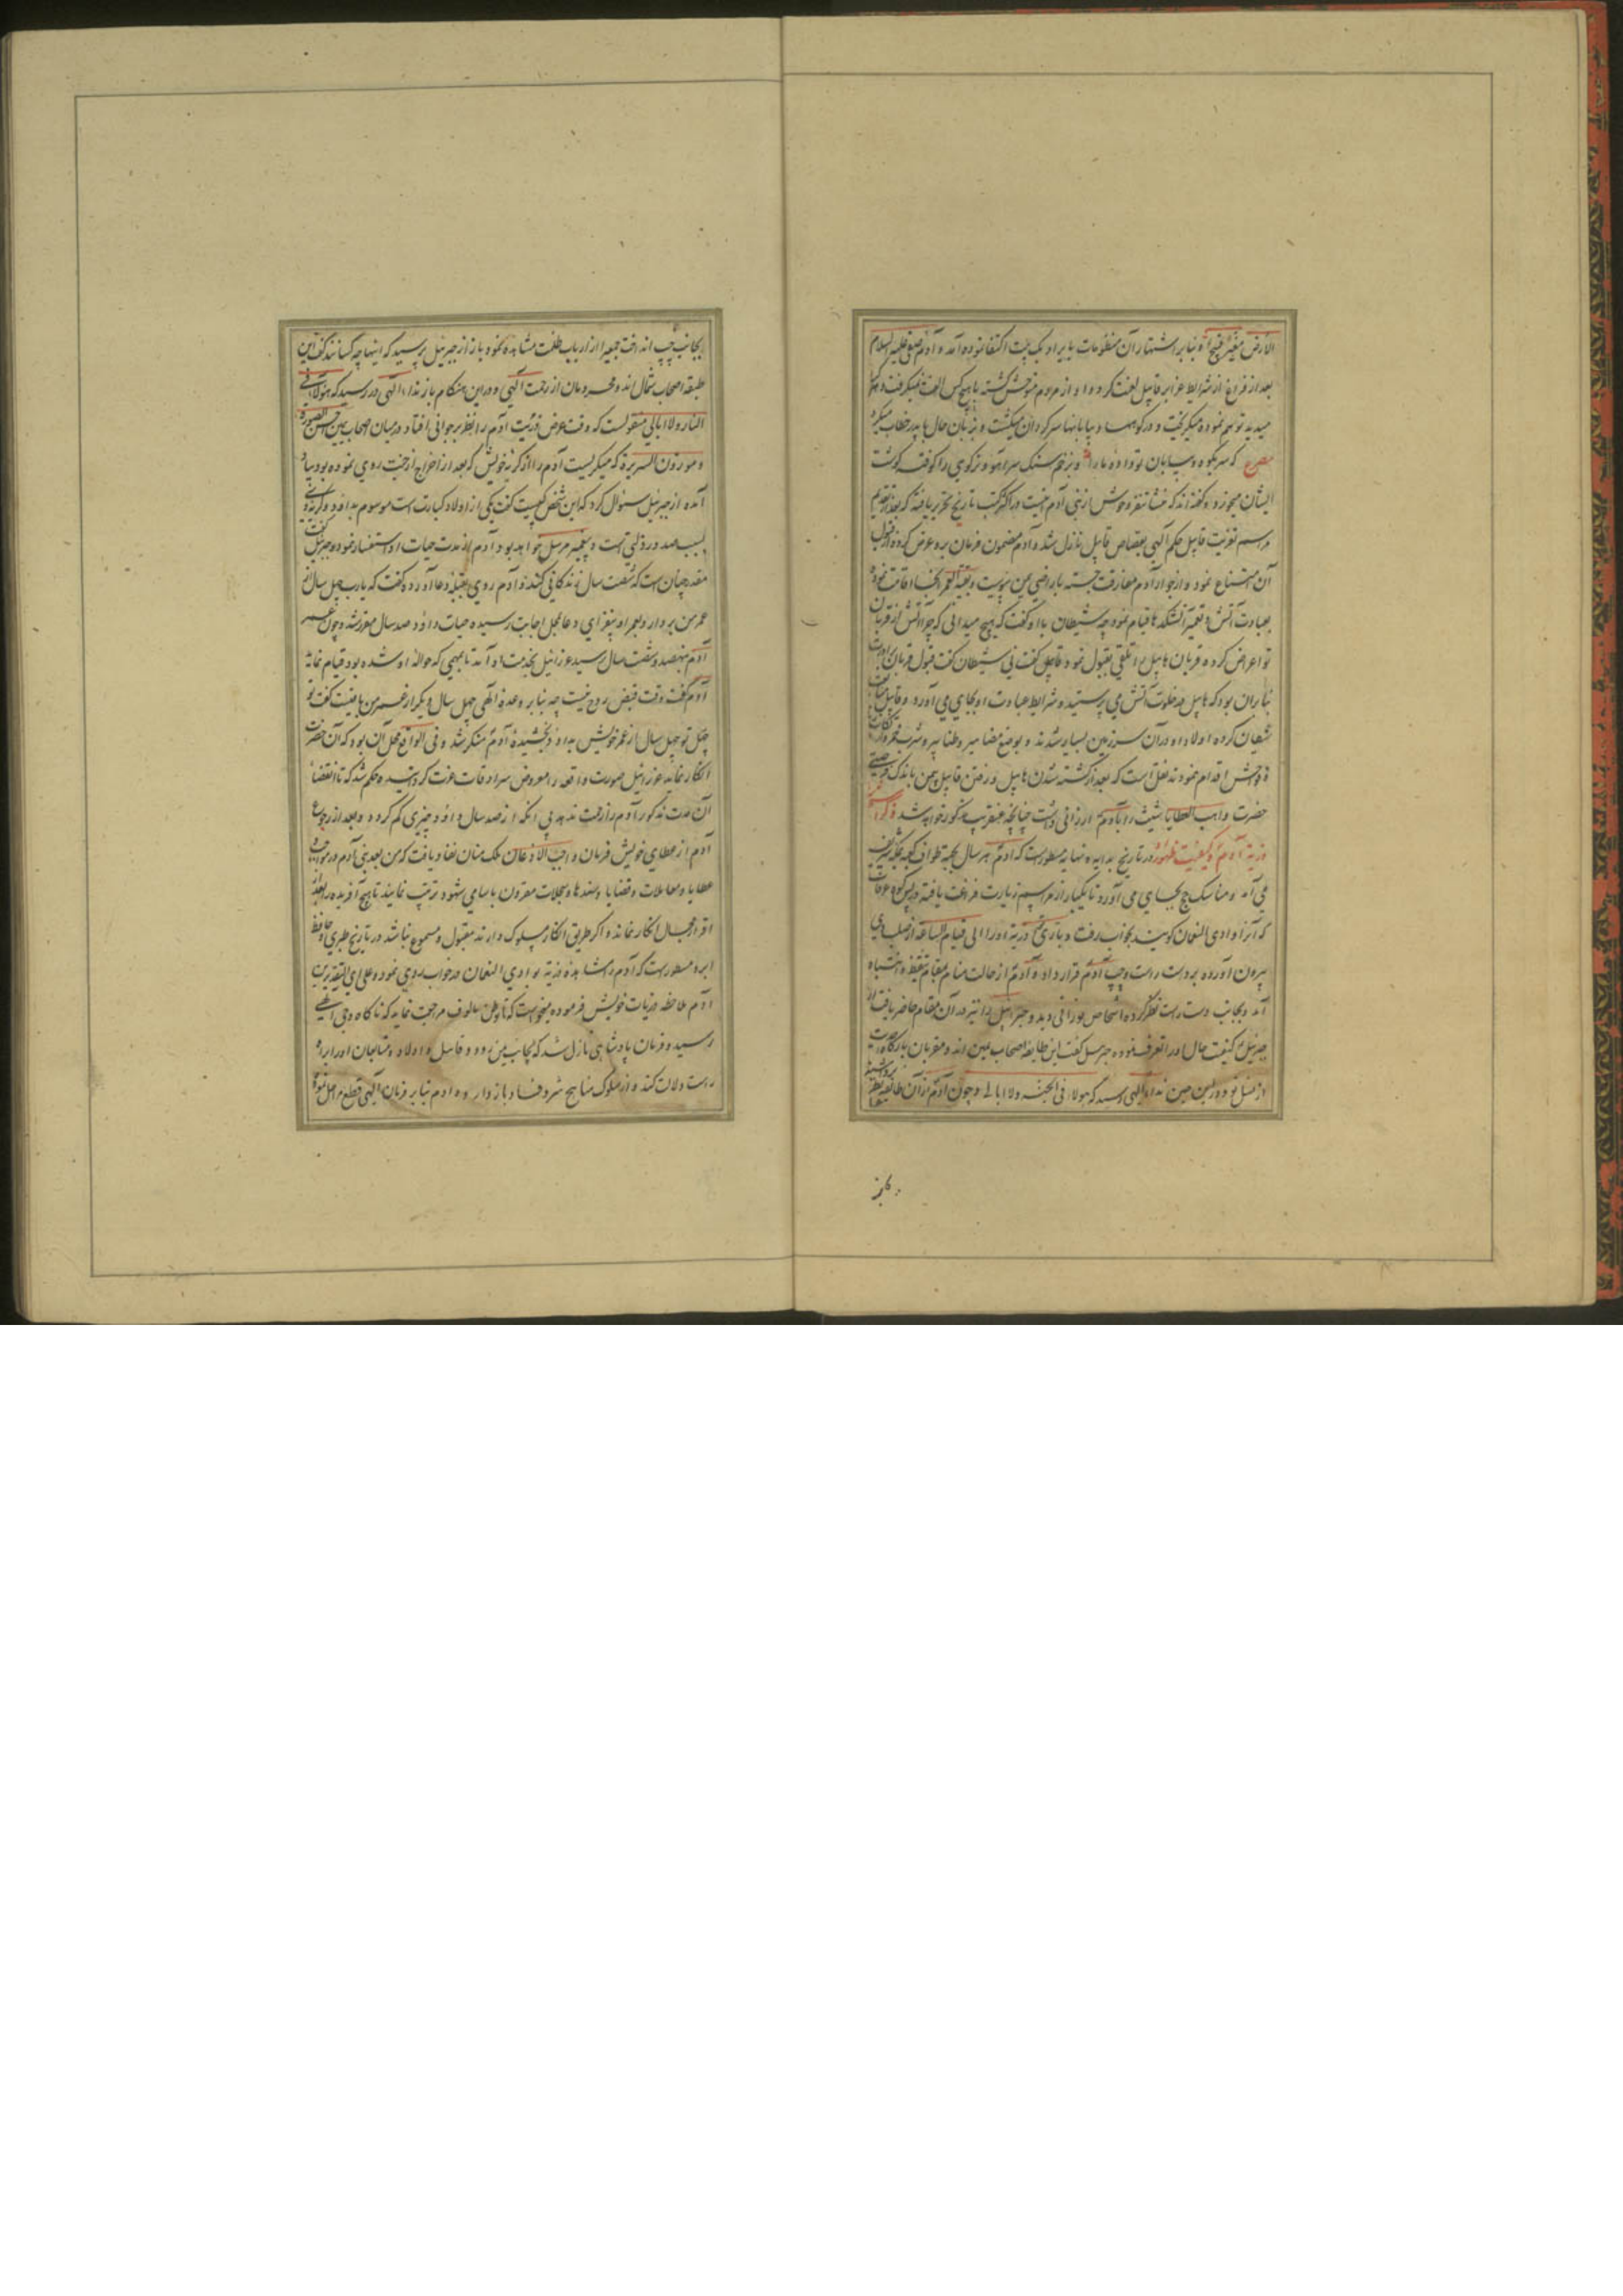 الارض مغبر قبیح و بنا بر اشتهار آن منظومات بایراد یک بیت اکتفا نموده آمد و آدم صفی علیه السلام
بعد از فراغ از شرایط عزا بر قابیل لعنت کرد و او از مردم متوحش گشته با هیچ کس الفت نمیگرفت و هر کرا
میدید توهم نموده میگریخت و در کوهها و بیابانها سرگردان میگشت و بزبان حال با پدر خطاب میکرد
مصرع که سر بکوه و بیابان تو داده ما را و بزخم سنک سر آهو و بز کوهی را کوفته گوشت
ایشان میخورد و گفته‌اند که منشا تنفر وحوش از بنی آدم اینست در اکثر کتب تاریخ تحریر یافته که بعد از تقدیم
مراسم تعزیت قابیل حکم الهی بقصاص قابیل نازل شد و آدم مضمون فرمان برو عرض کرده از قبول
آن امتناع نمود و از جوار آدم مفارقت جسته باراضی یمن پیوست و بقیة العمر آنجا اقامت نموده
بعبادت آتش و تعمیر آتشکدها قیام نمود چه شیطان با او گفت که هیچ میدانی که چرا آتش از قربان
تو اعراض کرده قربان هابیل را تلقی بقبول نمود قابیل گفت نی شیطان گفت قبول قربان برادرت
بنا بران بود که هابیل در خلوت آتش می پرستید و شرایط عبادت او بجای می آورد و قابیل متابعت
شیطان کرده اولاد او در آن سرزمین بسیار شدند و بوضع مضامیر و طنابیر و شرب خمر و ارتکاب
فواحش اقدام نمودند نقل است که بعد از کشته شدن هابیل و رفتن قابیل بیمن باندک فرصتی
حضرت واهب العطایا شیث را بآدم ارزانی داشت چنانچه عنقریب مذکور خواهد شد ذکر اخراج
ذریة آدم و کیفیت ظهور در تاریخ بدایه و نهایه مسطورست که آدم هر سال بجهة طواف کعبه بمکه شریف
می آمد و مناسک حج بجای می آورد تا یکبار از مراسم زیارت فراغت یافته در پس کوه عرفات
که آنرا وادی النعمان گویند بخواب رفت و باری تعالی ذریة او را الی قیام الساعه از صلب وی
بیرون آورده بدست راست و چپ آدم قرار داد و آدم از حالت منام بمقام تیقظ و انتباه
آمد و بجانب دست راست نظر کرده اشخاص نورانی دید و جبرئیل را نیز در آن مقام حاضر یافت از
جبرئیل کیفیت حال او را تعرف نموده جبرئیل گفت این طایفه اصحاب یمین اند و مقربان بارگاه احدیت
از نسل تو و در این حین نداء الهی رسید که هولاء فی الجنه ولا ابالی و چون آدم از آن طایفه نظر
بجانب
بجانب چپ انداخت جمعی را از ارباب ظلمت مشاهده نمود باز از جبرئیل پرسید که اینها چه کسانند گفت این
طبقه اصحاب شمال اند و محرومان از رحمت الهی و در این هنگام باز نداء الهی در رسید که هولاء فی
النار ولا ابالی منقولست که وقت عرض ذریت آدم را نظر بر جوانی افتاد در میان اصحاب یمین احسن الصورة
و موزون السریرة که میگریست آدم را از گریه خویش که بعد از اخراج از جنت روی نموده بود بیاد
آمده از جبرئیل سئوال کرد که این شخص کیست گفت یکی از اولاد کبارت است موسوم بداود و گریه وی
بسبب صدور ذلتی است و پیغمبر مرسل خواهد بود آدم از مدت حیات او استفسار نمود جبرئیل گفت
مقدر چنان است که شصت سال زندگانی کند آدم روی بقبله دعا آورده گفت که یارب چهل سال از
عمر من بردار و بعمر او بیفزای دعا بمحل اجابت رسیده حیات داود صد سال مقرر شد و چون عمر
آدم بنهصد و شصت سال رسید عزرائیل بخدمت او آمد تا بمهمی که حواله او شده بود قیام نماید
آدم گفت وقت قبض روح نیست چه بنا بر وعده الهی چهل سال دیگر از عمر من باقیست گفت تو
چهل سال از عمر خویش بداود بخشیدهٔ آدم منکر شد و فی الواقع محل آن بود که آن حضرت
انکار نماید عزرائیل صورت واقعه را معروض سرادقات عزت گردانیده حکم شد که تا انقضاء
آن مدت مذکور آدم را زحمت ندهد بی آنکه از صد سال داود چیزی کم گردد و بعد از رجوع
آدم از عطای خویش فرمان واجب الاذعان ملک منان نفاذ یافت که من بعد بنی آدم در مواهب
عطایا و معاملات و قضایا و سندها و سجلات مقرون باسامی شهود ترتیب نمایند تا هیچ آفریده را بعد از
اقرار مجال انکار نماند و اگر طریق انکار مسلوک دارند مقبول و مسموع نباشد در تاریخ طبری و حافظ
ابرو مسطورست که آدم را مشاهده ذریة بوادی النعمان در خواب روی نمود و علی ای التقدیرین
آدم ملاحظه ذریات خویش فرموده میخواست که بوطن مالوف مراجعت نماید که ناگاه وحی الهی
رسید و فرمان پادشاهی نازل شد که بجانب یمن رود و قابیل و اولاد و متابعان او را براه
راست دلالت کند و از سلوک مناهج شر و فساد باز دارد و آدم بنا بر فرمان الهی قطع مراحل نموده